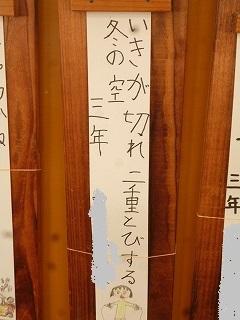 いきが切れ 二重とびする
冬の空
三年
三年